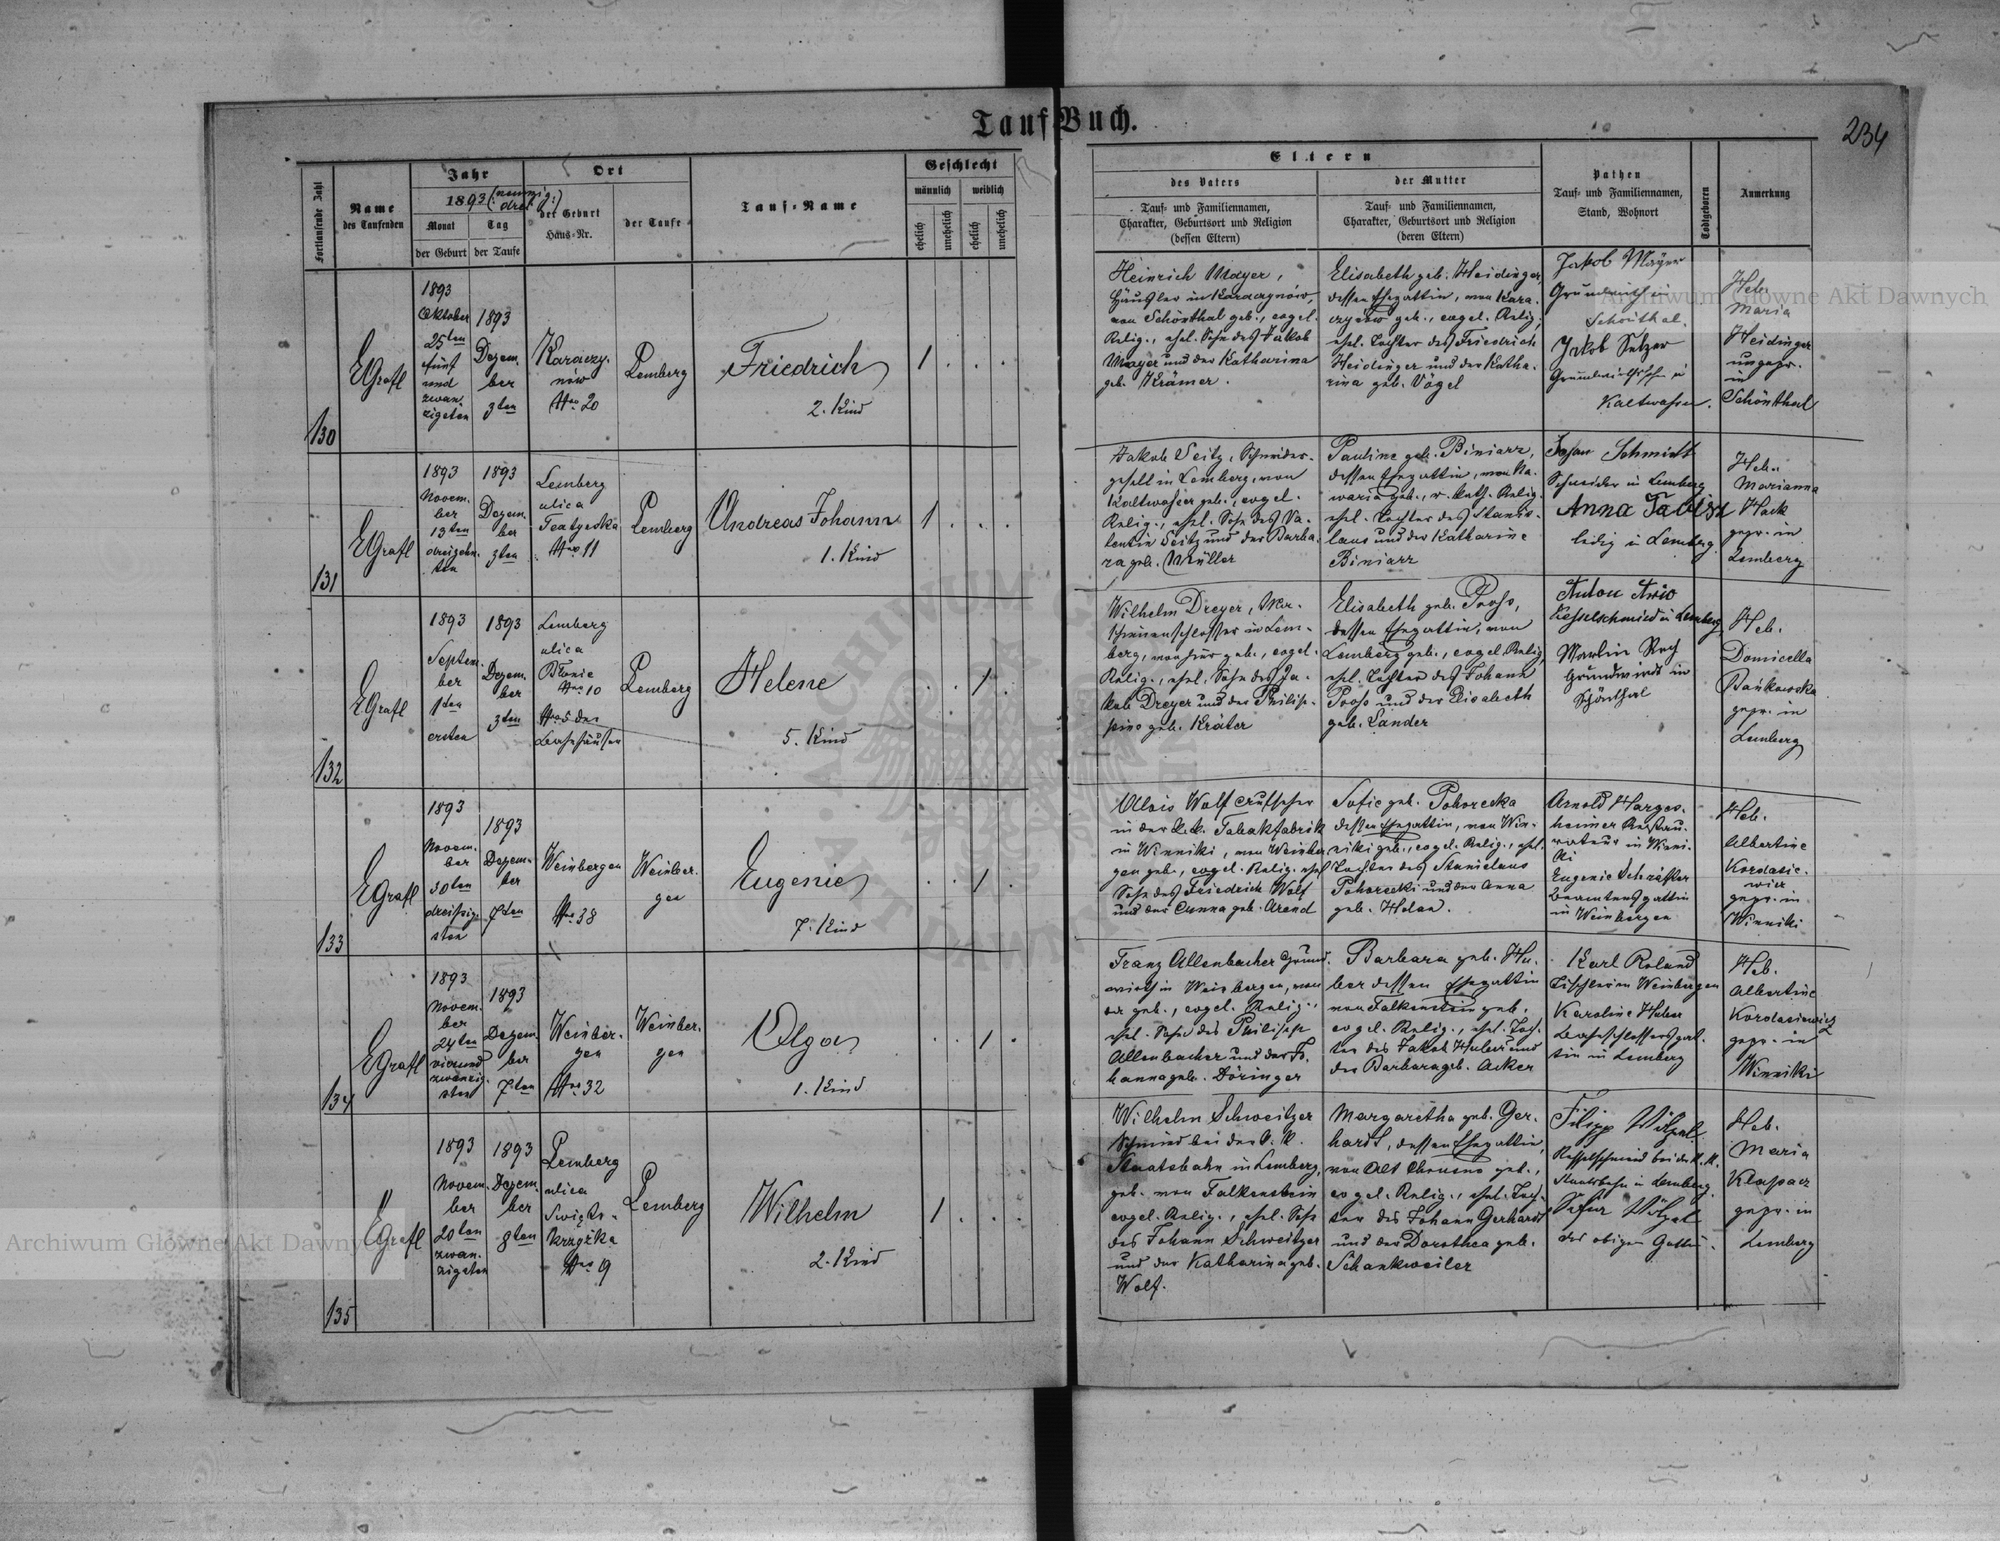 Tauf-Buch.
234
Fortlaufende Zahl
Name
des Taufenden
Jahr
1893 (neunzig drei)
Monat
der Geburt
Tag
der Taufe
Ort
der Geburt
Haus-Nr.
der Taufe
Tauf-Name
Geschlecht
männlich
weiblich
ehelich
unehelich
ehelich
unehelich
Eltern
des Vaters
Tauf- und Familiennamen,
Charakter, Geburtsort und Religion
(dessen Eltern)
der Mutter
Tauf- und Familiennamen,
Charakter, Geburtsort und Religion
(deren Eltern)
Pathen
Tauf- und Familiennamen,
Stand, Wohnort
Todtgeboren
Anmerkung
130
EGrafl
1893
Oktober
25ten
fünf
und
zwan-
zigsten
1893
Dezem-
ber
3ten
Karaczy-
nów
Nro 20
Lemberg
Friedrich
2. Kind
1
Heinrich Mayer,
Häusler in Karaczynów,
von Schönthal geb., evgel.
Relig., ehel. Sohn des Jakob
Mayer und der Katharina
geb. Krämer.
Elisabeth geb. Heidinger,
dessen Ehegattin, von Kara-
czynów geb., evgel. Relig.,
ehel. Tochter des Friedrich
Heidinger und der Katha-
rina geb. Vögel
Jakob Mayer
Grundwirth in
Schönthal.
Jakob Setzer
Grundwirthssohn in
Kaltwasser.
Heb.
Maria
Heidinger
ungepr.
in
Schönthal
131
EGrafl
1893
Novem-
ber
13ten
dreizehn-
ten
1893
Dezem-
ber
3ten
Lemberg
ulica
Teatyńska
Nro 11
Lemberg
Andreas Johann
1. Kind
1
Jakob Seitz, Schneider-
gesell in Lemberg, von
Kaltwasser geb., evgel.
Relig., ehel. Sohn des Va-
lentin Seitz und der Barba-
ra geb. Müller
Pauline geb. Biniarz,
dessen Ehegattin, von Ka-
waria geb., r. kath. Relig.
ehel. Tochter des Stanis-
laus und der Katharine
Biniarz
Johann Schmidt
Schneider in Lemberg
Anna
ledig in Lemberg
Heb.
Marianna
Hack
gepr. in
Lemberg
132
EGrafl
1893
Septem-
ber
1ten
ersten
1893
Dezem-
ber
3ten
Lemberg
ulica
Błonie
Nro 10
Nro 5 der
Bahnhäuser
Lemberg
Helene
5. Kind
1
Wilhelm Dreyer, Ma-
schinenschlosser in Lem-
berg, von hier geb., evgel.
Relig., ehel. Sohn des Ja-
kob Dreyer und der Philip-
pine geb. Kräter
Elisabeth geb. Pross,
dessen Ehegattin, von
Lemberg geb., evgel. Relig.,
ehel. Tochter des Johann
Pross und der Elisabeth
geb. Lander
Anton
Kesselschmied in Lemberg
Martin Rech
Grundwirth in
Schönthal
Heb.
Domicella
Bańkowska
gepr. in
Lemberg
133
EGrafl
1893
Novem-
ber
30ten
dreissig-
sten
1893
Dezem-
ber
7ten
Weinbergen
Nro 38
Weinber-
gen
Eugenie
7. Kind
1
Alois Wolf Aufseher
in der k.k. Tabakfabrik
in Winniki, von Weinber-
gen geb., evgel. Relig. ehel.
Sohn des Friedrich Wolf
und der Anna geb. Arend
Sofie geb. Pohorecka
dessen Ehegattin, von Win-
niki geb., evgel. Relig., ehel.
Tochter des Stanislaus
Pohorecki und der Anna
geb. Holan.
Arnold Harges-
heimer Restau-
rateur in Winni-
ki
Eugenie Schräfter
Beamtensgattin
in Weinbergen
Heb.
Albertine
Kordasie-
wicz
gepr. in
Winniki
134
EGrafl
1893
Novem-
ber
24ten
vierund
zwanzig-
sten
1893
Dezem-
ber
7ten
Weinber-
gen
Nro 32
Weinber-
gen
Olga
1. Kind
1
Franz Allenbacher Grund-
wirth in Weinbergen, von
da geb., evgel. Relig.,
ehel. Sohn des Philipp
Allenbacher und der Jo-
hanna geb. Döringer
Barbara geb. Hu-
ber dessen Ehegattin
von Falkenstein geb.
evgel. Relig., ehel. Toch-
ter des Jakob Huber und
der Barbara geb. Acker
Karl Roland
Tischler in Weinbergen
Karoline Huber
Bahnschlossersgat-
tin in Lemberg
Heb.
Albertine
Kordasiewicz
gepr. in
Winniki
135
EGrafl
1893
Novem-
ber
20ten
zwan-
zigsten
1893
Dezem-
ber
8ten
Lemberg
ulica
Święto-
krzyżka
Nro 9
Lemberg
Wilhelm
2. Kind
1
Wilhelm Schweitzer
Schmied bei der k. k.
Staatsbahn in Lemberg,
geb. von Falkenstein
evgel. Relig., ehel. Sohn
des Johann Schweitzer
und der Katharina geb.
Wolf.
Margaretha geb. Ger-
hardt, dessen Ehegattin,
von Alt Chrusno geb.,
evgel. Relig., ehel. Toch-
ter des Johann Gerhardt
und der Dorothea geb.
Schankweiler
Filipp Wölpel
Kesselschmied bei der k. k.
Staatsbahn in Lemberg.
Wölpel
des obigen Gattin.
Heb.
Maria
Klapacz
gepr. in
Lemberg
Archiwum Główne Akt Dawnych
Archiwum Główne Akt Dawnych